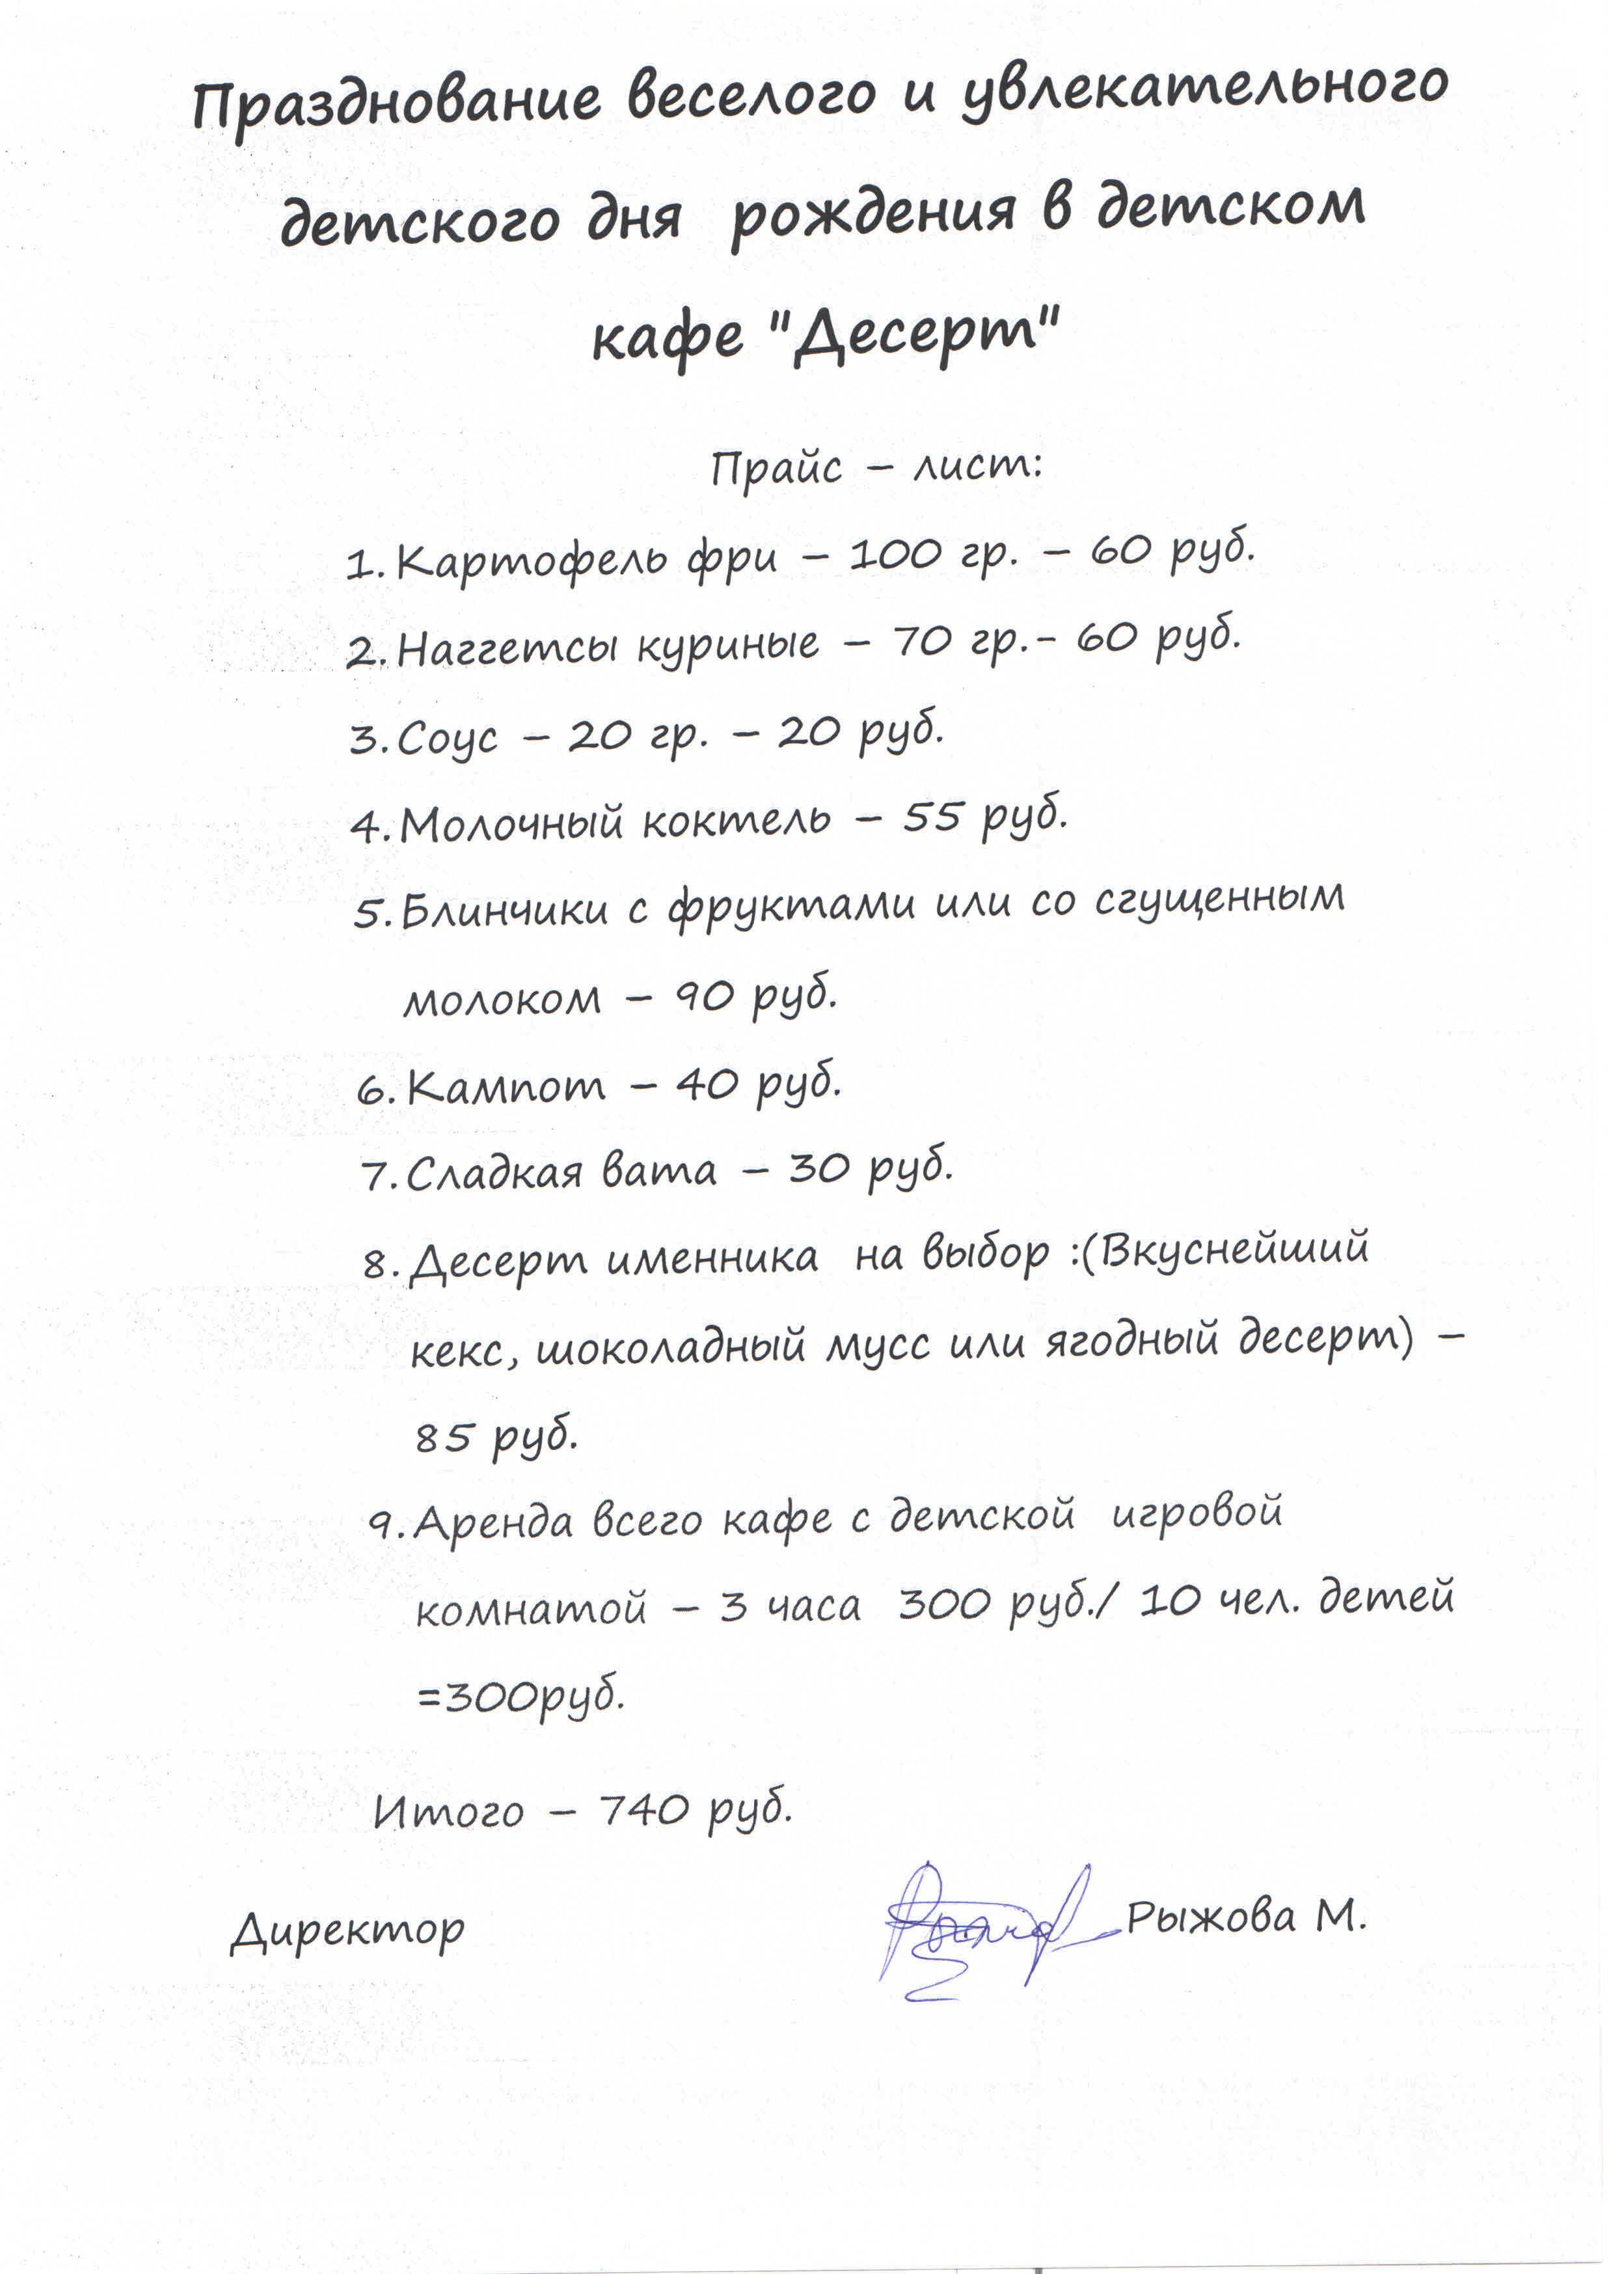 Празднование веселого и увлекательного
детского дня рождения в детском
кафе "Десерт"
Прайс – лист:
1. Картофель фри – 100 гр. – 60 руб.
2. Наггетсы куриные – 70 гр.- 60 руб.
3. Соус – 20 гр. – 20 руб.
4. Молочный коктель – 55 руб.
5. Блинчики с фруктами или со сгущенным
молоком – 90 руб.
6. Кампот – 40 руб.
7. Сладкая вата – 30 руб.
8. Десерт именника на выбор :(Вкуснейший
кекс, шоколадный мусс или ягодный десерт) –
85 руб.
9. Аренда всего кафе с детской игровой
комнатой – 3 часа 300 руб./ 10 чел. детей
=300руб.
Итого – 740 руб.
Директор Рыжова М.